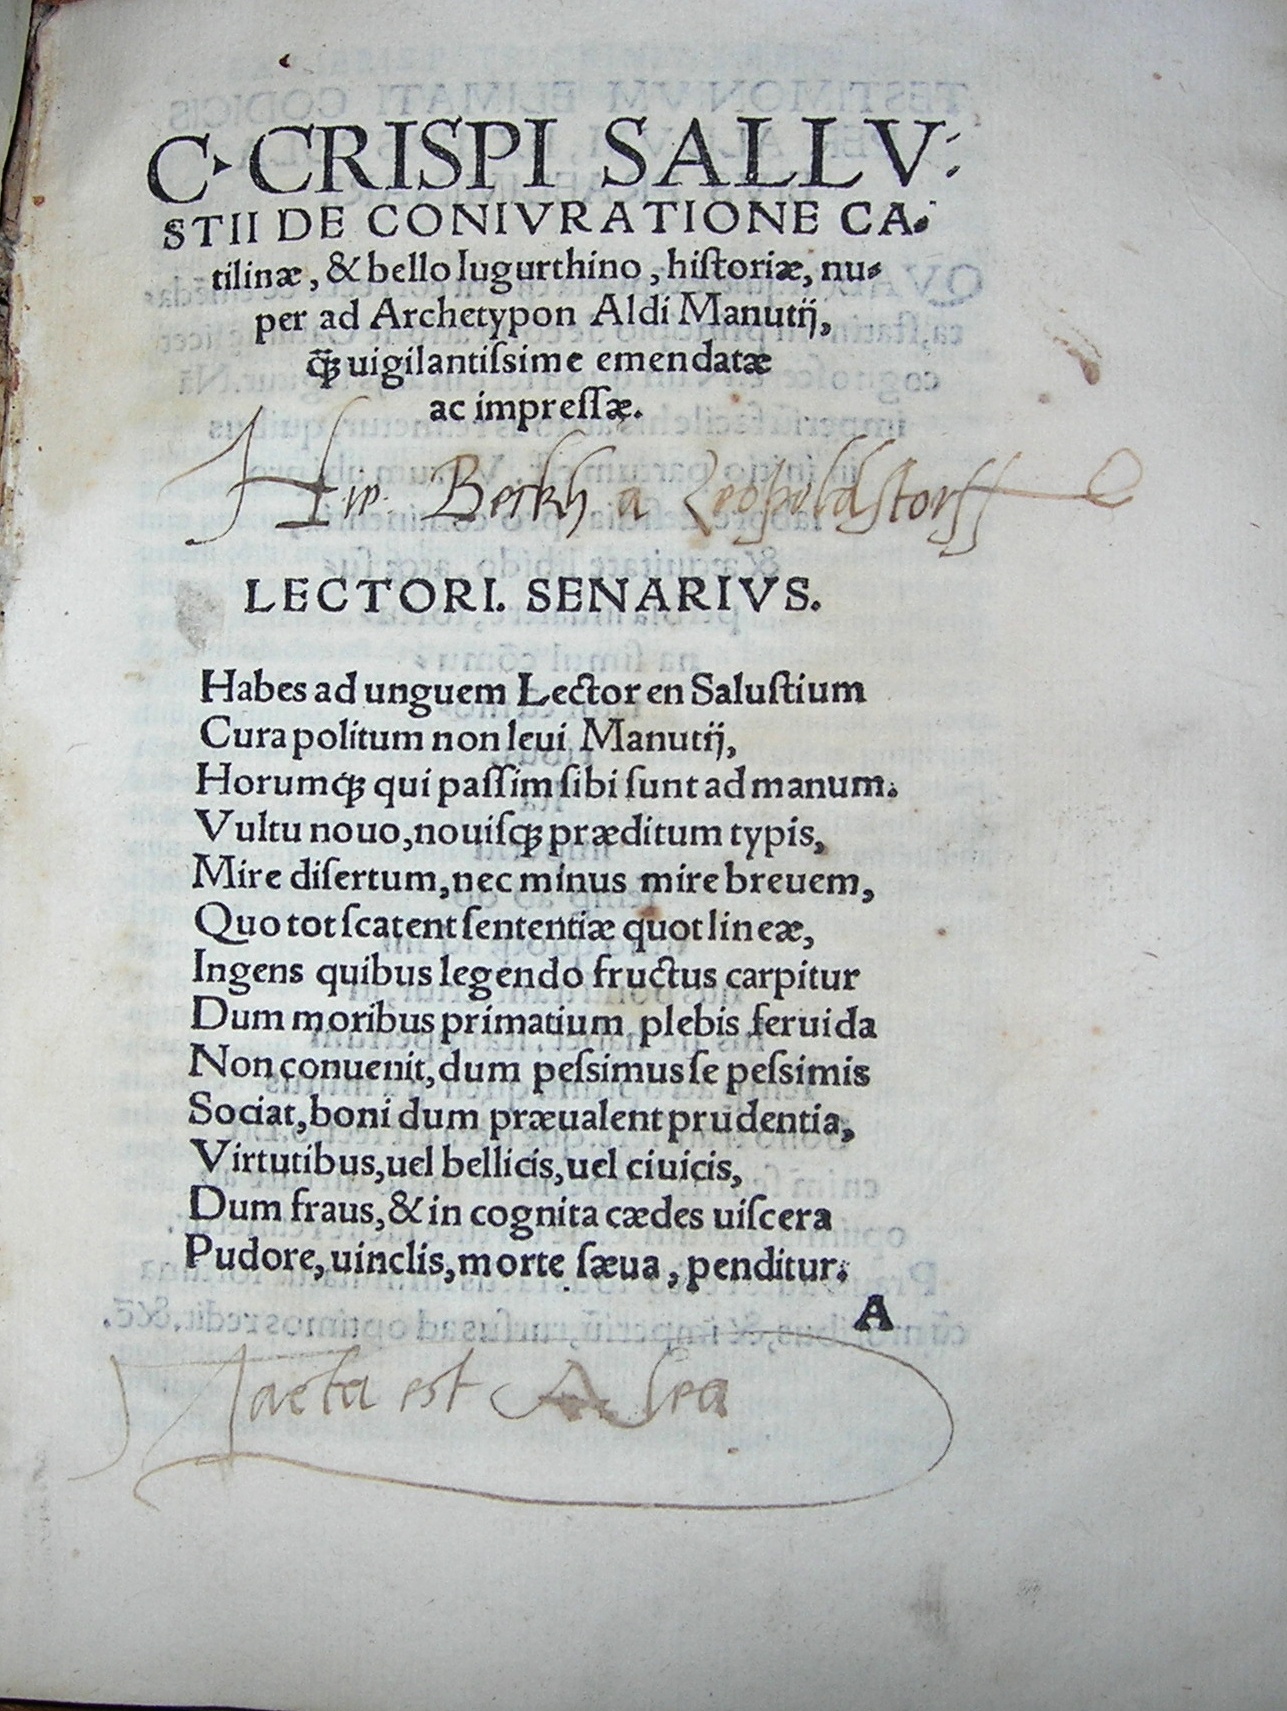 C. CRISPI SALLV-
STII DE CONIVRATIONE CA-
tilinæ, & bello Iugurthino, hiſtoriæ, nu-
per ad Archetypon Aldi Manutij,
q̃ꝫ uigilantiſsime emendatæ
ac impreſſæ.
Hie. Berkh a Leopoldſtorff
LECTORI. SENARIVS.
Habes ad unguem Lector en Saluſtium
Cura politum non leui Manutij,
Horumqꝫ qui paſſim ſibi ſunt ad manum.
Vultu nouo, nouiſqꝫ præditum typis,
Mire diſertum, nec minus mire breuem,
Quo tot ſcatent ſententiæ quot lineæ,
Ingens quibus legendo fructus carpitur
Dum moribus primatium plebis feruida
Non conuenit, dum peſsimus ſe peſsimis
Sociat, boni dum præualent prudentia,
Virtutibus, uel bellicis, uel ciuicis,
Dum fraus, & in cognita cædes uiſcera
Pudore, uinclis, morte ſæua, penditur.
A
Jacta est Alea